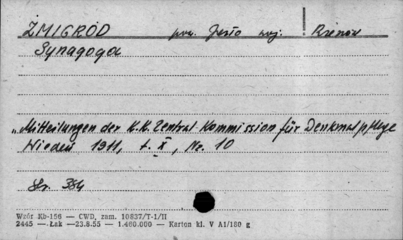 ŻMIGRÓD pow. Jasło woj. Rzeszów
Synagoga
„Mitteilungen der K.K. Zentral-Kommission für Denkmalpflege
Wiedeń 1911, t. X, Nr. 10
Str. 384
Wzór Kb-156 — CWD, zam. 10837/T-1/II
2445 — Łak — 23.8.55 — 1.460.000 — Karton kl. V A1/180 g